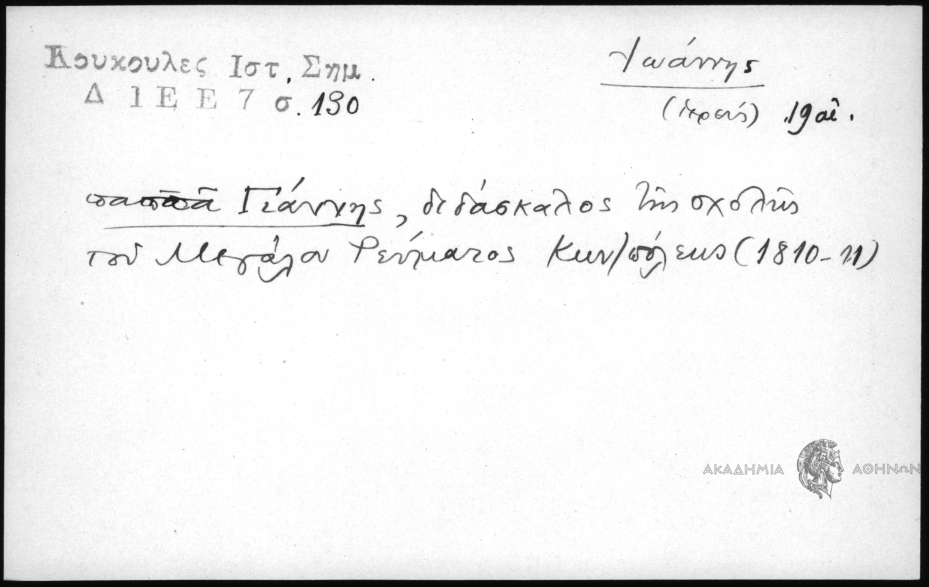 Κουκουλες Ιστ. Σημ.
Δ 1 Ε Ε 7 σ. 130
Ἰωάννης
(ἱερεύς) 19 αἰ.
παπᾶ Γιάννης, διδάσκαλος τῆς σχολῆς
τοῦ Μεγάλου Ρεύματος Κων/πόλεως (1810-11)
ΑΚΑΔΗΜΙΑ ΑΘΗΝΩΝ